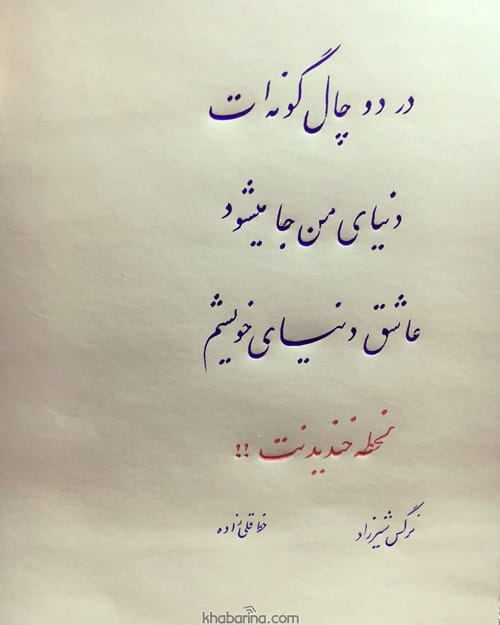 در دو چال گونه ات
دنیای من جا میشود
عاشق دنیای خویشم
لحظه خندیدنت !!
نرگس شیرزاد
خط قلی زاده
khabarina.com